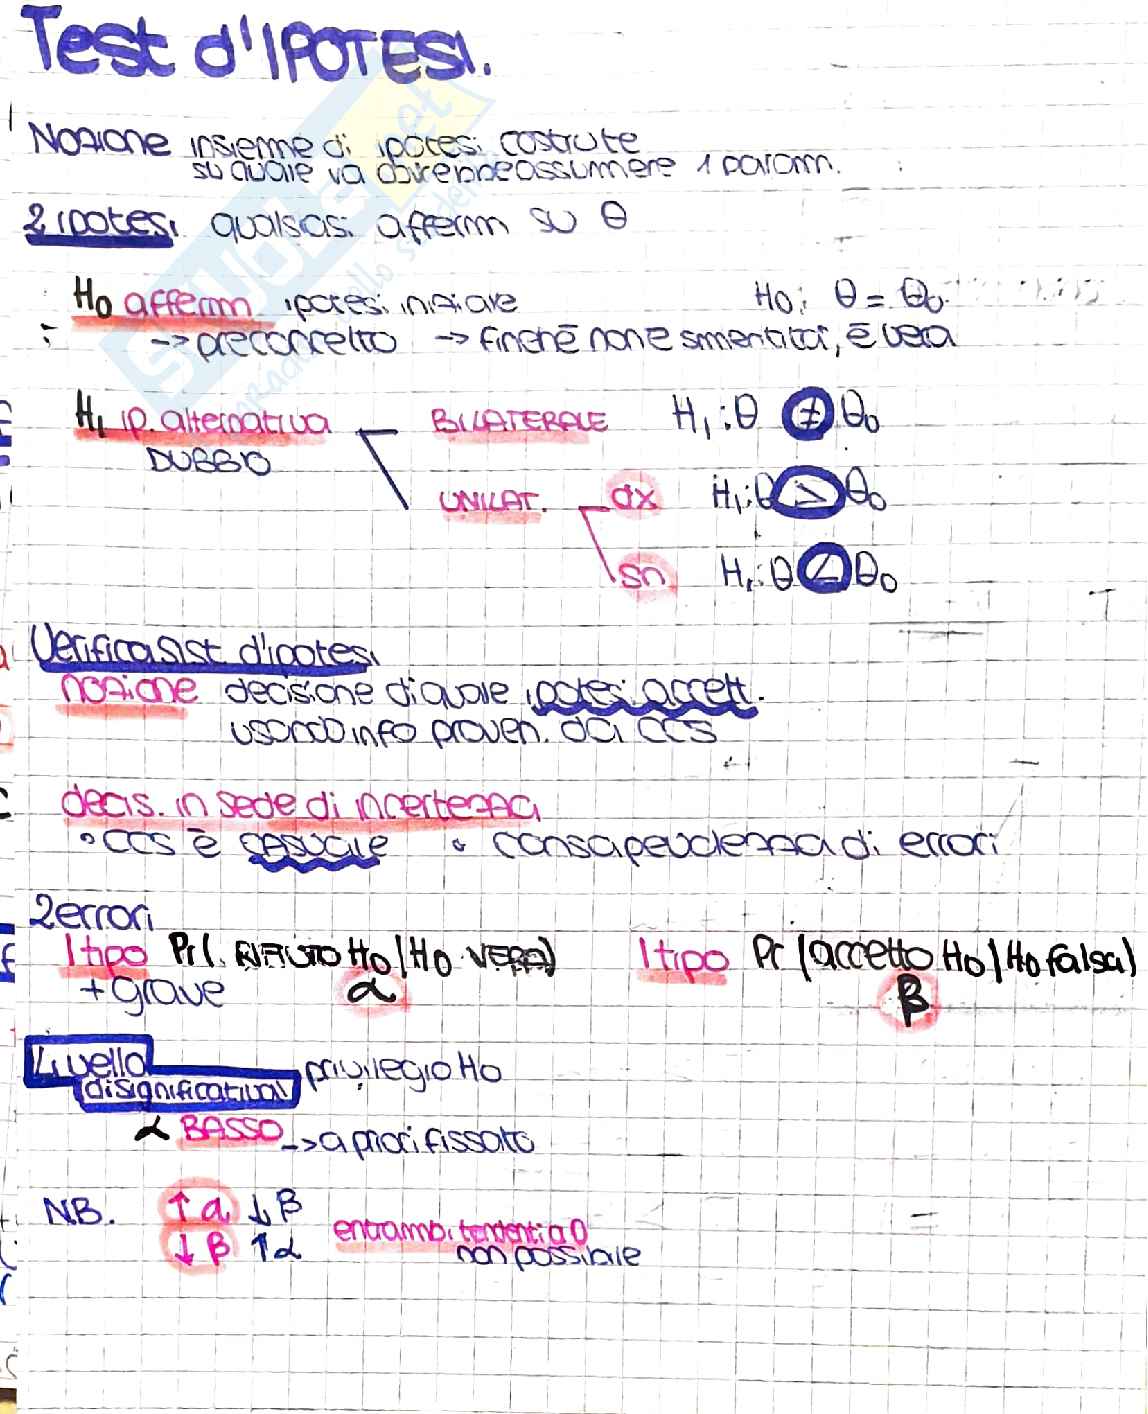 Test d'IPOTESI.
Nozione insieme di ipotesi costruite
su quale va dovrebbe assumere 1 param.
2 ipotesi qualsiasi afferm su θ
H0 afferm ipotesi iniziale H0: θ = θ0
-> preconcetto -> finché non è smentita, è vera
H1 ip. alternativa BILATERALE H1: θ ≠ θ0
DUBBIO
UNILAT. dx H1: θ > θ0
sn H1: θ < θ0
Verifica sist d'ipotesi
nozione decisione di quale ipotesi accett.
usando info proven. da CCS
decis. in sede di incertezza
• CCS è casuale • consapevolezza di errori
2 errori
I tipo Pr(. RIFIUTO H0 | H0 VERA) I tipo Pr (accetto H0 | H0 falsa)
+ grave α β
Livello privilegio H0
di significatival
α BASSO -> a priori fissato
N.B. ↑ α ↓ β
entrambi tendenti a 0
↓ β ↑ α non possibile